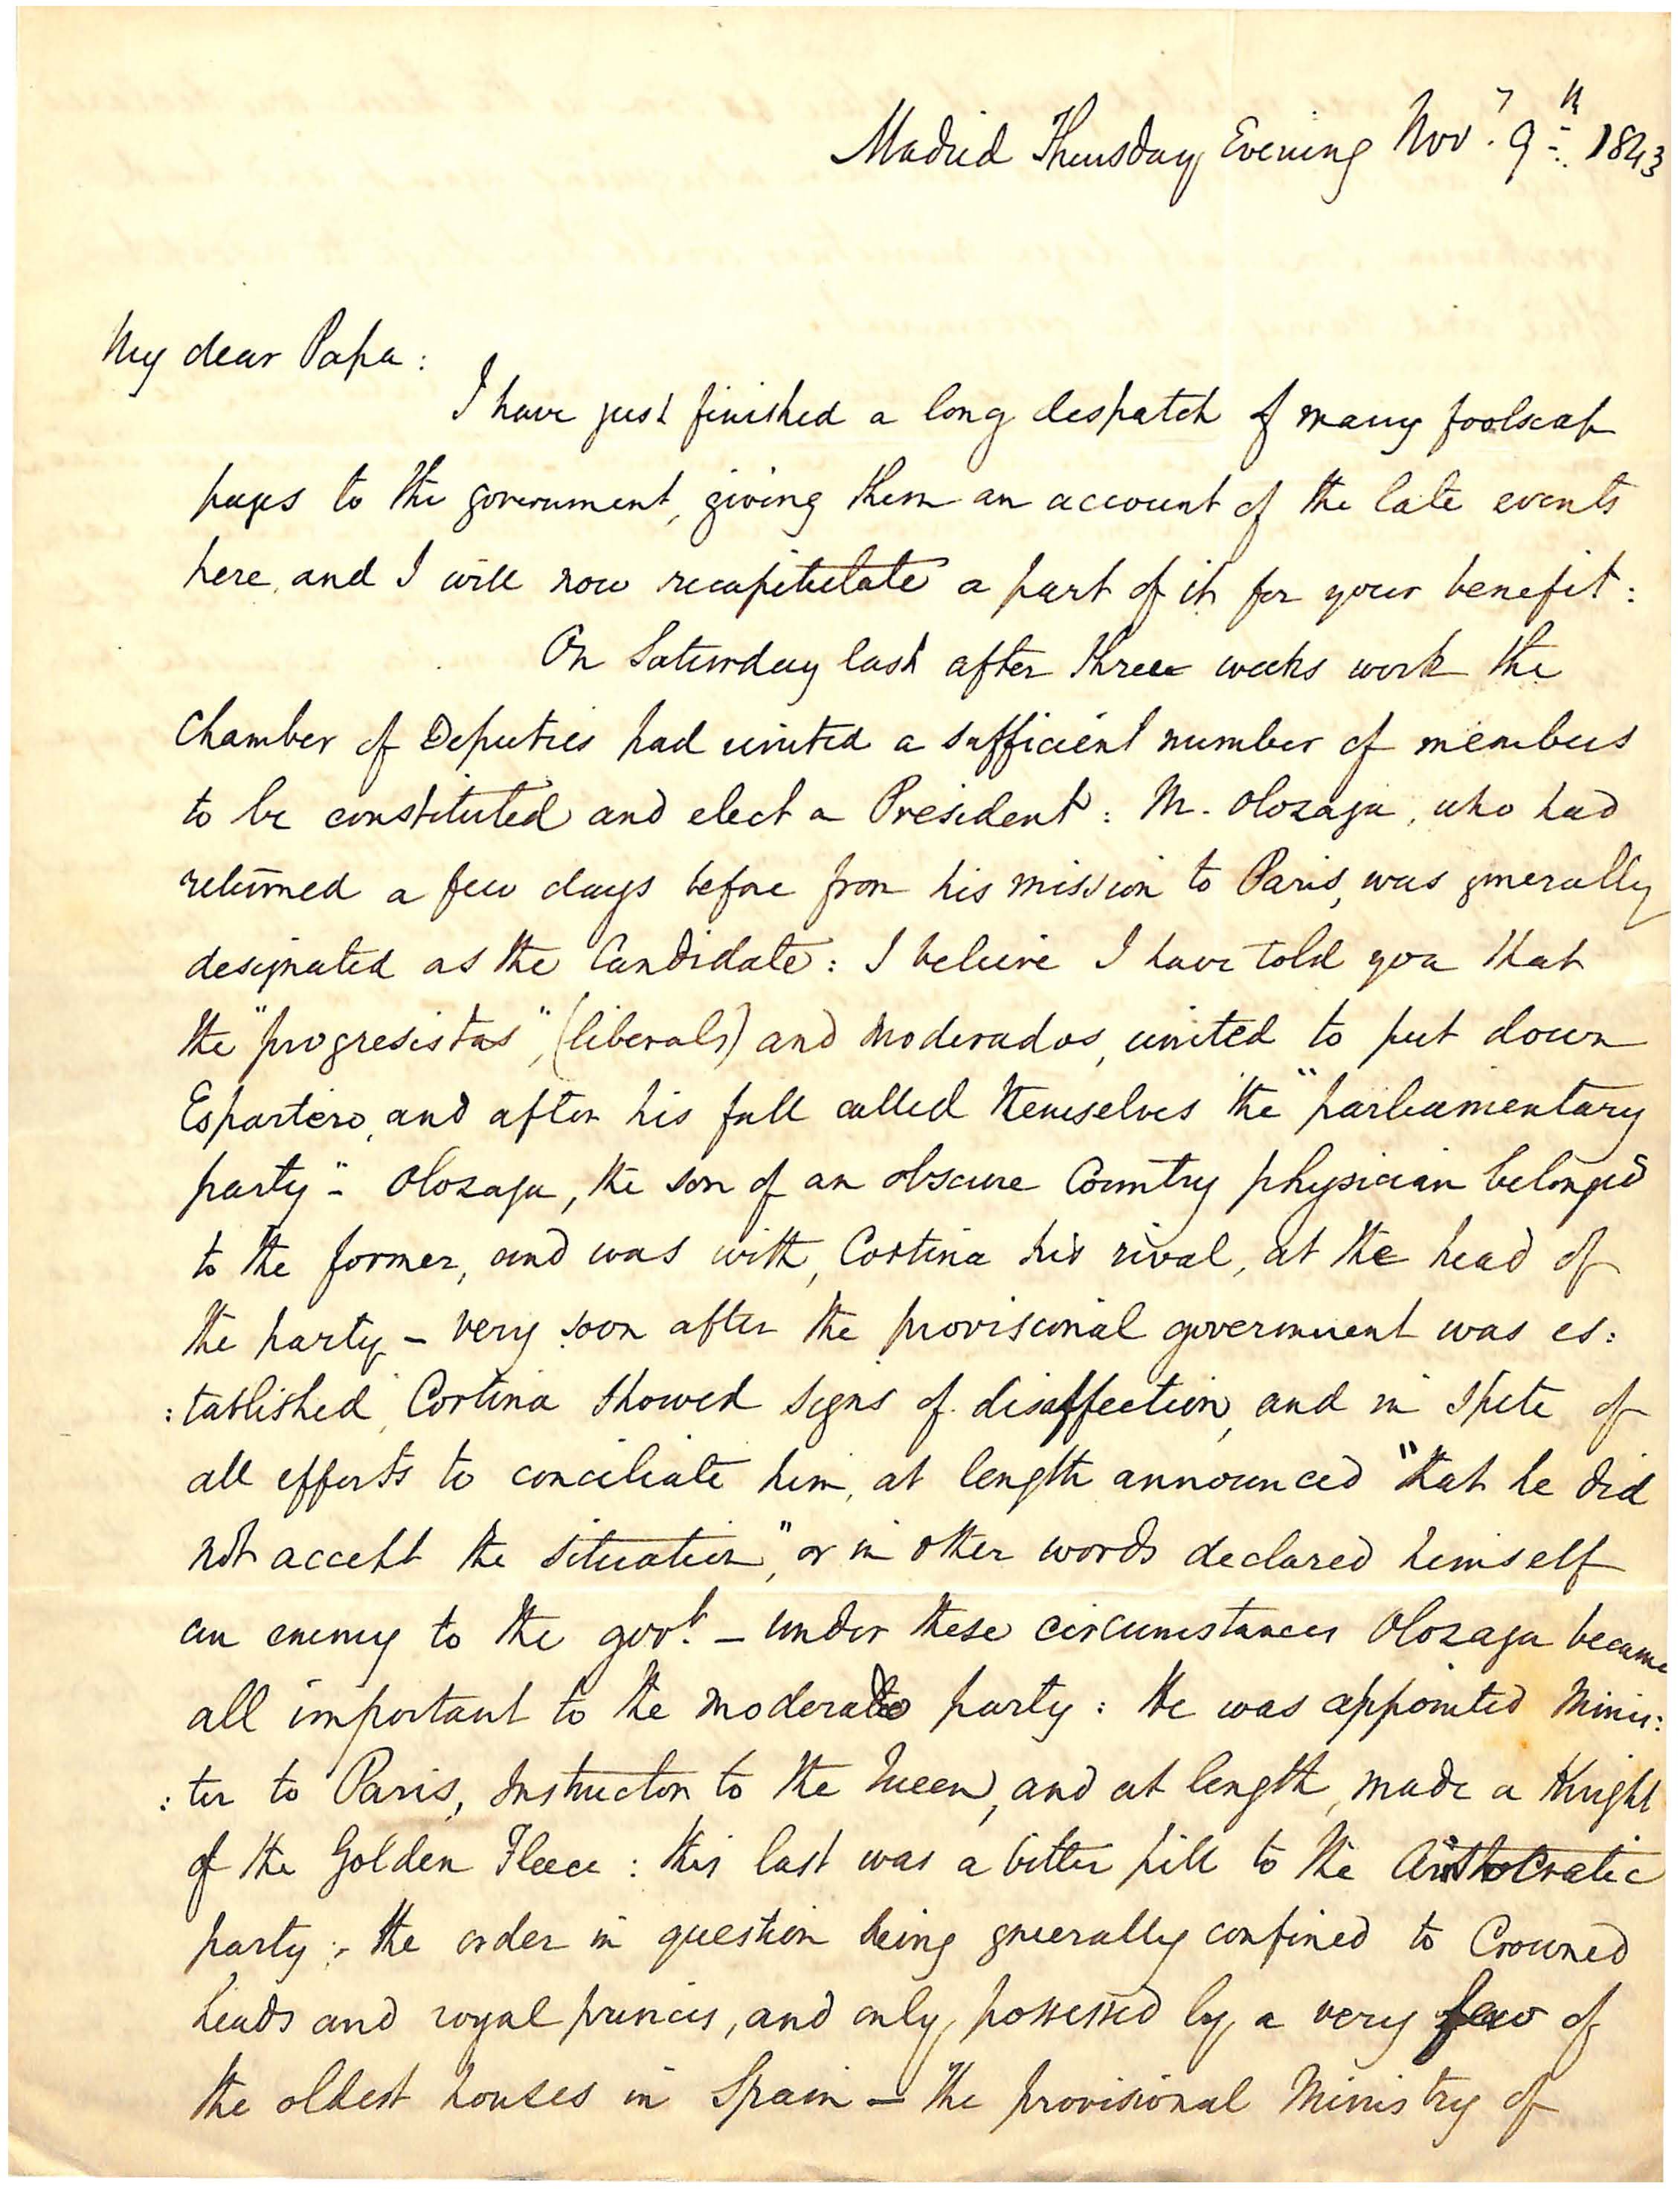 Madrid Thursday Evening Nov.r 9th. 1843
My dear Papa:
I have just finished a long despatch of many foolscap
pages to the government, giving them an account of the late events
here, and I will now recapitulate a part of it for your benefit:
On Saturday last after three weeks work the
Chamber of Deputies had united a sufficient number of members
to be constituted and elect a President: M. Olozaga, who had
returned a few days before from his mission to Paris, was generally
designated as the Candidate: I believe I have told you that
the "progresistas", (liberals) and Moderados, united to put down
Espartero, and after his fall called themselves the "parliamentary
party" - Olozaga, the son of an obscure Country physician belonged
to the former, and was with, Cortina his rival, at the head of
the party - very soon after the provisional government was es:
:tablished, Cortina showed signs of disaffection, and in spite of
all efforts to conciliate him, at length announced "that he did
not accept the situation", or in other words declared himself
an enemy to the govt. - under these circumstances Olozaga became
all important to the moderado party: He was appointed Minis:
:ter to Paris, Instructor to the Queen, and at length, made a Knight
of the Golden Fleece: this last was a bitter pill to the Aristocratic
party; the order in question being generally confined to Crowned
heads and royal princes, and only possessed by a very few of
the oldest houses in Spain - The provisional Ministry of